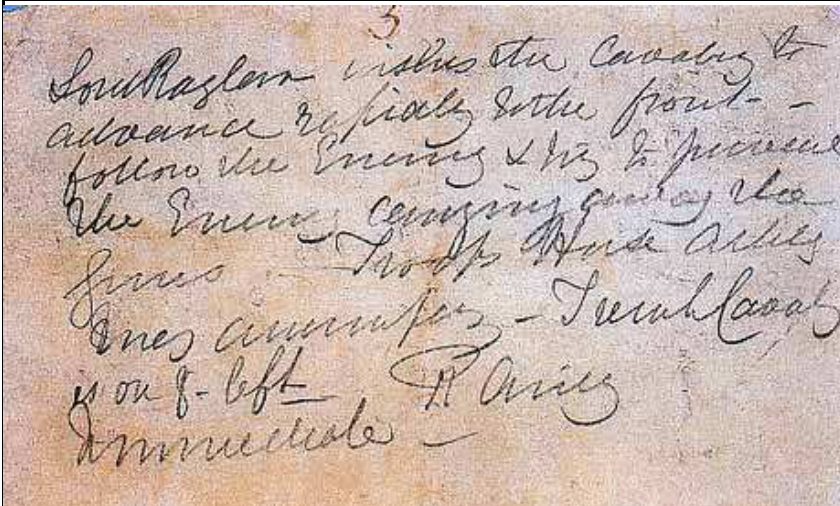 3
Lord Raglan wishes the Cavalry to
advance rapidly to the front -
follow the Enemy & try to prevent
the Enemy carrying away the
guns - Troop Horse Artillery
may accompany - French Cavalry
is on yr left
R Airey
Immediate -